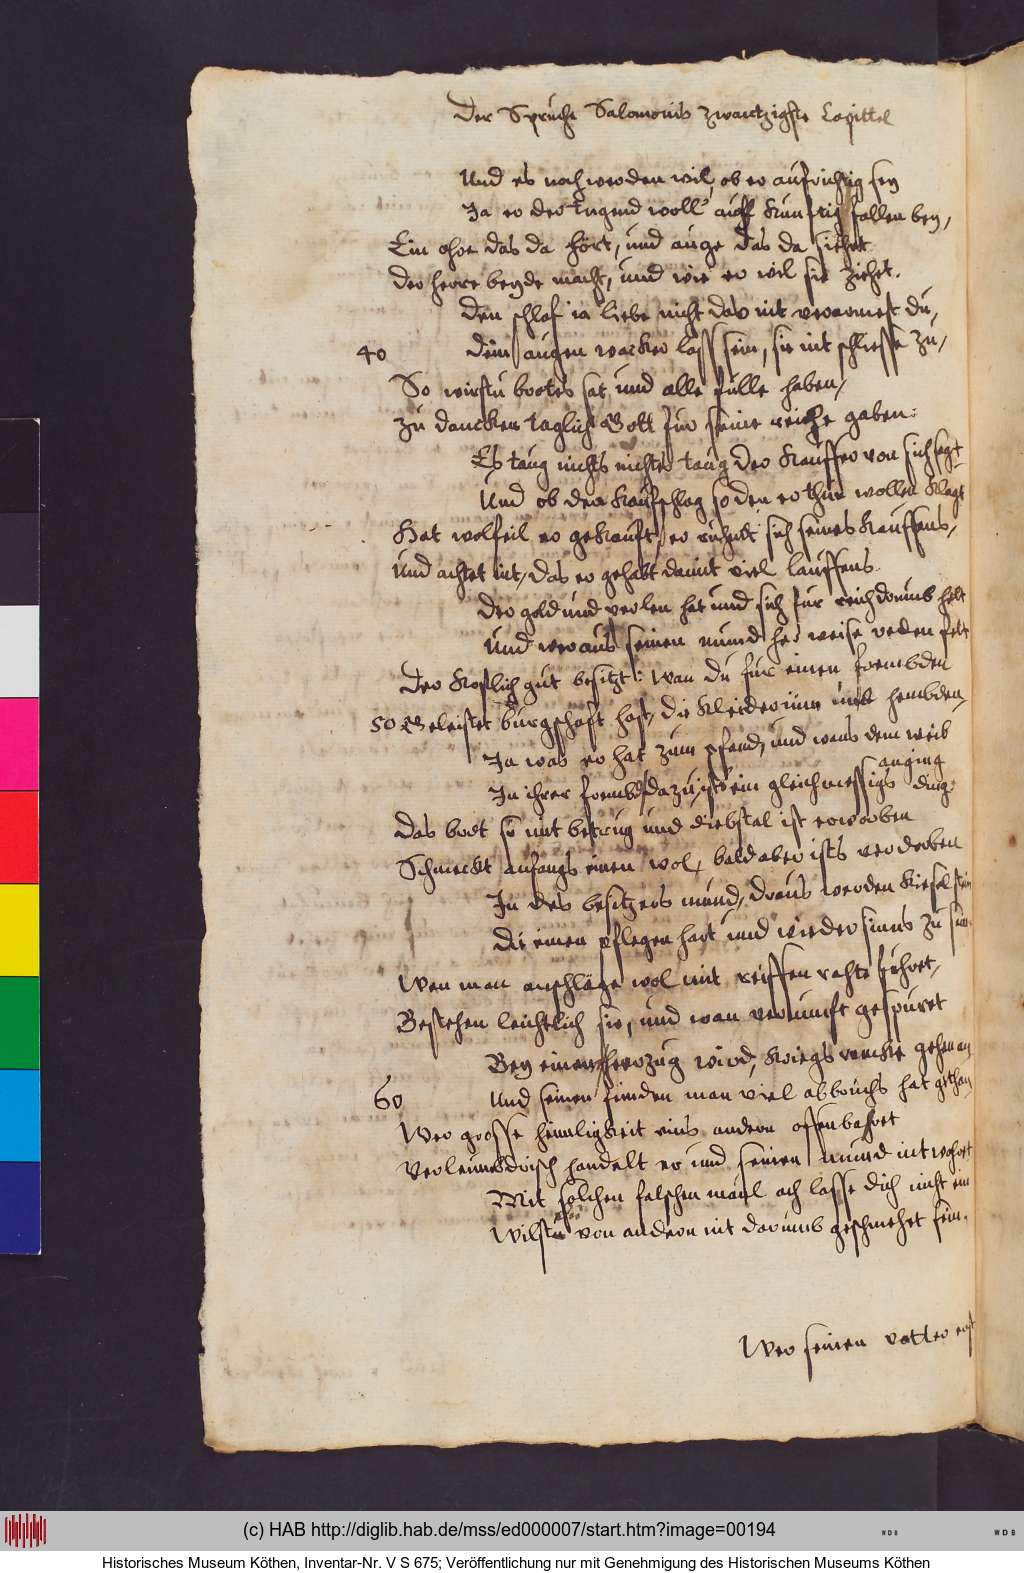 Der Spruche Salomonis zwantzigste Capittel
Und es noch werden wil, ob er aufrichtig sey
Ja er der tugend woll auch kunftig fallen bey,
Ein ohr das da hört, und auge das da siehet
der herre beyde macht, und wie er wil sie ziehet.
Den schlaf ia liebe nicht das nit verarmest du,
40 Dein augen wacker lass sein, sie nit schliesse zu,
So wirstu brotes sat und alle fulle haben,
Zu dancken taglich Gott fur seine reiche gaben:
Es taug nichts nichts taug der Kauffer von sich sagt
Und ob den Kaufschlag so den er thun wollen klagt
Hat wolfeil er gekauft, er ruhmt sich seines Kauffens,
Und achtet nit, das er gehabt damit viel lauffens
Der gold und perlen hat und sich fur reich darumb helt
Und wer aus seinen mund her weise reden felt
Der kostlich gut besitzt: Wan du fur einen frembden
50 Geleistet burgschaft hast, die kleider nim und hembden,
Ja was er hat zum pfand, und wans dem weib
anging
In ihrer frembd dazu, ists ein gleichmessigs ding:
Das brot so mit betrug und diebstal ist erworben
Schmeckt anfangs einen wol, bald aber ists verdorben
In des besitzers mund, draus werden kieselstein
Die einen pflegen hart und wieder sinns zu sein
Wen man anschläge wol mit reiffen rahte fuhret,
Bestehen leichtlich sie, und wan vernunft gespuret
Bey einem herzug wird, kriegs rencke gehen an
60 Und seinen feinden man viel abbruchs hat gethan
Wer grosse heimligkeit eins andern offenbahret
Verleumbdrisch handelt er und seinen mund nit wahret
Mit solchen falschen maul ach lasse dich nicht ein
Wilstu von andern nit darumb geschmehet sein.
Wer seinen vatter erst
(c) HAB http://diglib.hab.de/mss/ed000007/start.htm?image=00194
WDB
WDB
Historisches Museum Köthen, Inventar-Nr. V S 675; Veröffentlichung nur mit Genehmigung des Historischen Museums Köthen